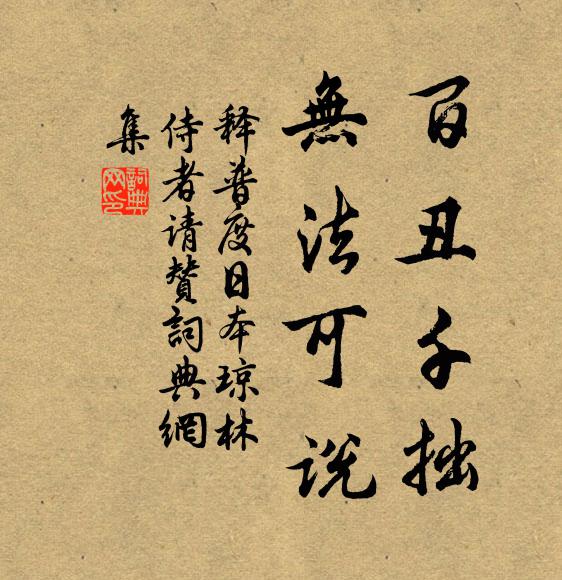 百丑千拙
無法可説
释普度日本琼林
侍者请赞詞典網
集
詞典网印